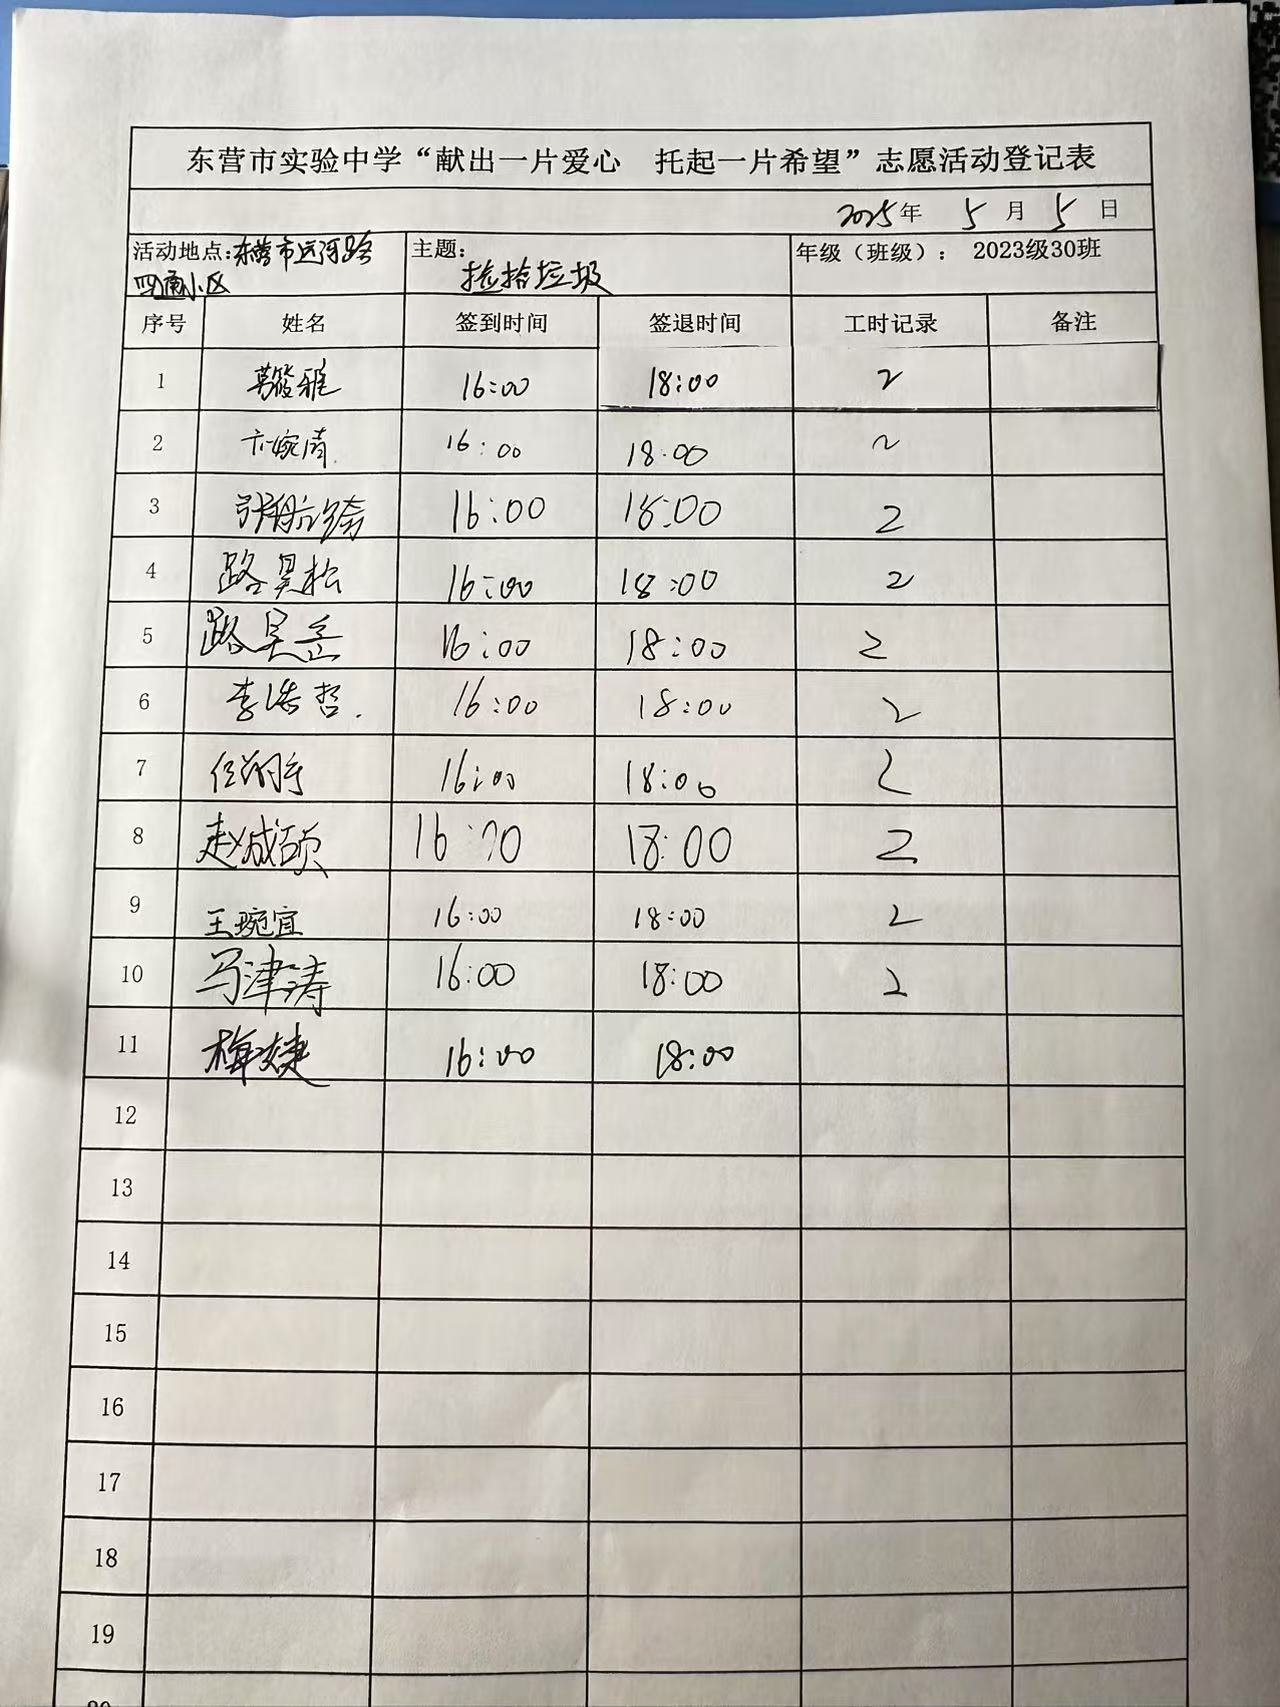 东营市实验中学“献出一片爱心　托起一片希望”志愿活动登记表
2025年 5 月 5 日
活动地点:东营市运河路 主题: 捡拾垃圾 年级（班级）： 2023级30班
四通小区
序号 姓名 签到时间 签退时间 工时记录 备注
1 雅 16:00 18:00 2
2 卞婉清 16:00 18:00 2
3 张航 16:00 18:00 2
4 路昊松 16:00 18:00 2
5 路昊岳 16:00 18:00 2
6 李浩哲. 16:00 18:00 2
7 任 16:00 18:00 2
8 赵成硕 16:00 18:00 2
9 王琬宜 16:00 18:00 2
10 马津涛 16:00 18:00 2
11 梅婕 16:00 18:00
12
13
14
15
16
17
18
19
20